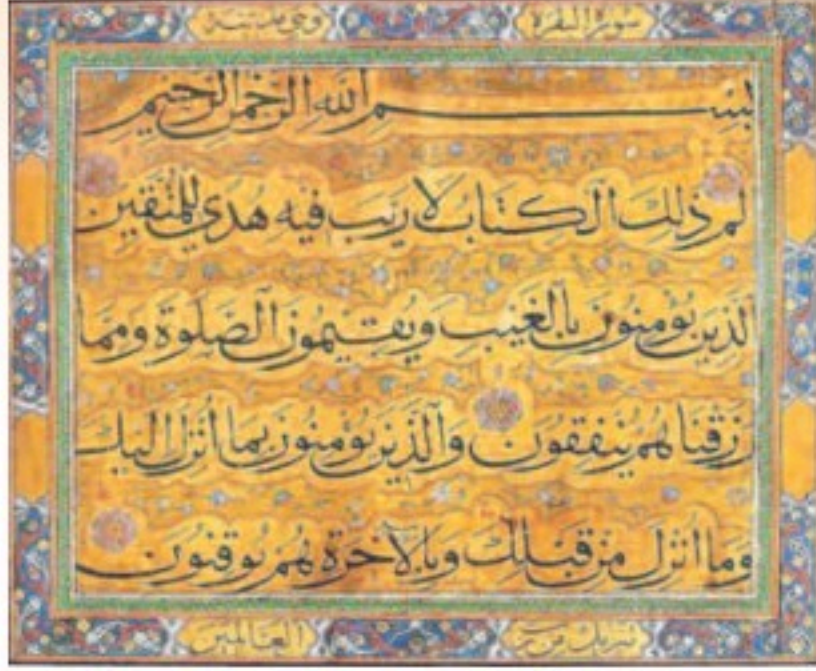 سورة البقرة وهي مدنية
بِسْمِ اللَّهِ الرَّحْمَنِ الرَّحِيمِ
لم ذَلِكَ الْكِتَابُ لَا رَيْبَ فِيهِ هُدًى لِلْمُتَّقِينَ
الَّذِينَ يُؤْمِنُونَ بِالْغَيْبِ وَيُقِيمُونَ الصَّلَوةَ وَمِمَّا
رَزَقْنَاهُمْ يُنْفِقُونَ وَالَّذِينَ يُؤْمِنُونَ بِمَا أُنْزِلَ إِلَيْكَ
وَمَا أُنْزِلَ مِنْ قَبْلِكَ وَبِالْآخِرَةِ هُمْ يُوقِنُونَ
تنزيل من رب العالمين